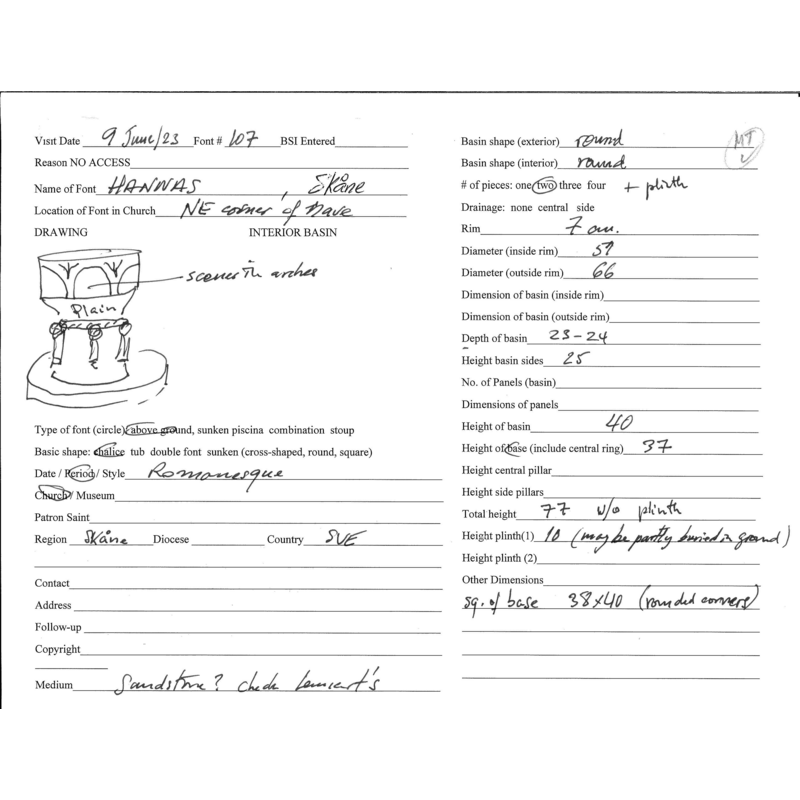 Visit Date 9 June/23 Font # 107 BSI Entered
Reason NO ACCESS
Name of Font HANNAS, Skåne
Location of Font in Church NE corner of nave
DRAWING INTERIOR BASIN
scenes in arches
Plain
Type of font (circle) above ground, sunken piscina combination stoup
Basic shape: chalice tub double font sunken (cross-shaped, round, square)
Date / Period / Style Romanesque
Church / Museum
Patron Saint
Region Skåne Diocese Country SVE
Contact
Address
Follow-up
Copyright
Medium Sandstone? check Lennart's
Basin shape (exterior) round
MT
Basin shape (interior) round
# of pieces: one two three four + plinth
Drainage: none central side
Rim 7 cm.
Diameter (inside rim) 51
Diameter (outside rim) 66
Dimension of basin (inside rim)
Dimension of basin (outside rim)
Depth of basin 23-24
Height basin sides 25
No. of Panels (basin)
Dimensions of panels
Height of basin 40
Height of base (include central ring) 37
Height central pillar
Height side pillars
Total height 77 w/o plinth
Height plinth(1) 10 (may be partly buried in ground)
Height plinth (2)
Other Dimensions
sq. of base 38x40 (rounded corners)